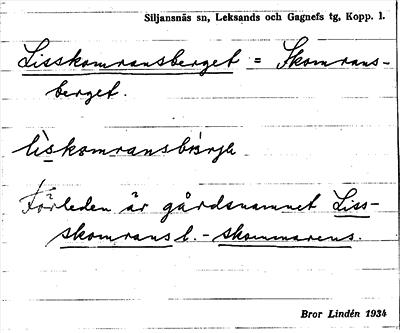 Siljansnäs sn, Leksands och Gagnefs tg, Kopp. l.
Lisskomransberget = Skomrans-
berget.
Förleden är gårdsnamnet Liss-
skomrans l. - skommarens.
Bror Lindén 1934